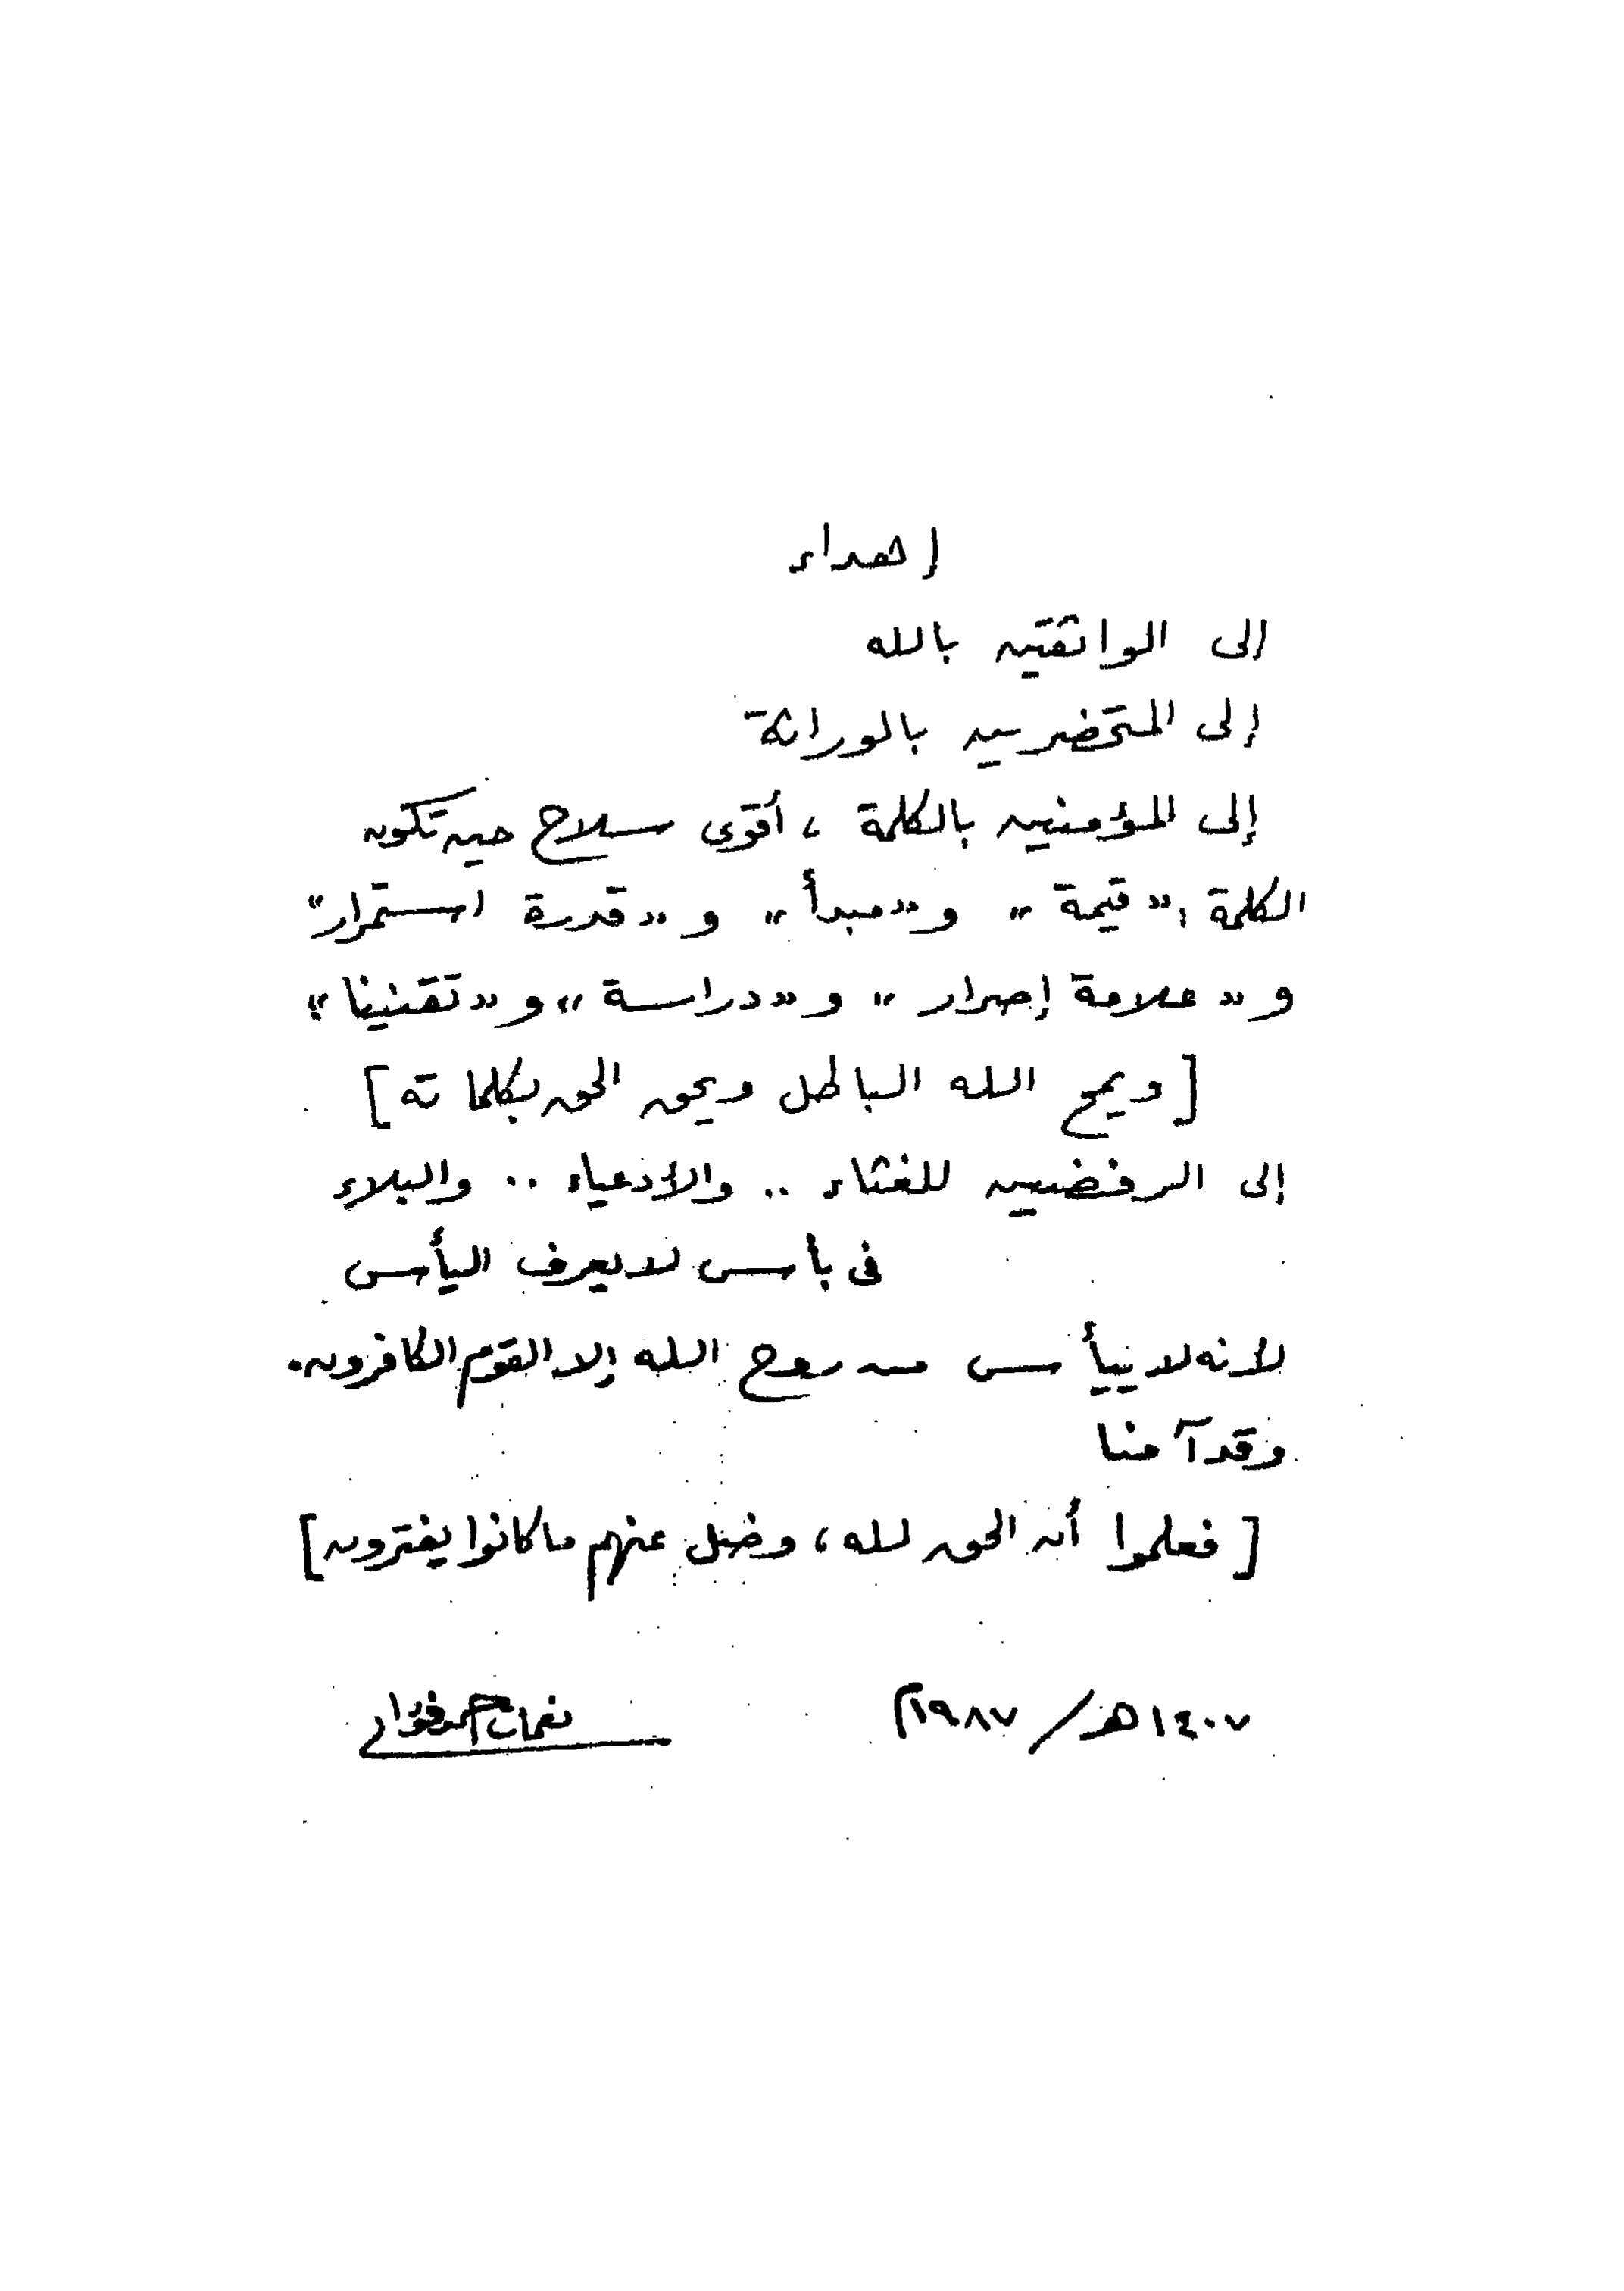 إهداء
إلى الواثقين بالله
إلى المتحضرين بالوراثة
إلى المؤمنين بالكلمة ، أقوى سلاح حين تكون
الكلمة : « قيمة » و « مبدأ » و « قدرة استمرار »
و « علامة إصرار » و « دراسة » و « تقنينا » ؛
[ ويمح الله الباطل ويحق الحق بكلماته ]
إلى الرفضيين للغثاء .. والأدعياء .. والبلاء
فى بأس لا يعرف اليأس
لأنه لا ييأس من روح الله إلا القوم الكافرون .
وقد آمنا
[ فعلموا أن الحق لله ، وضل عنهم ما كانوا يفترون ]
١٤٠٧ هـ / ١٩٨٧ م
نعمات أحمد فؤاد